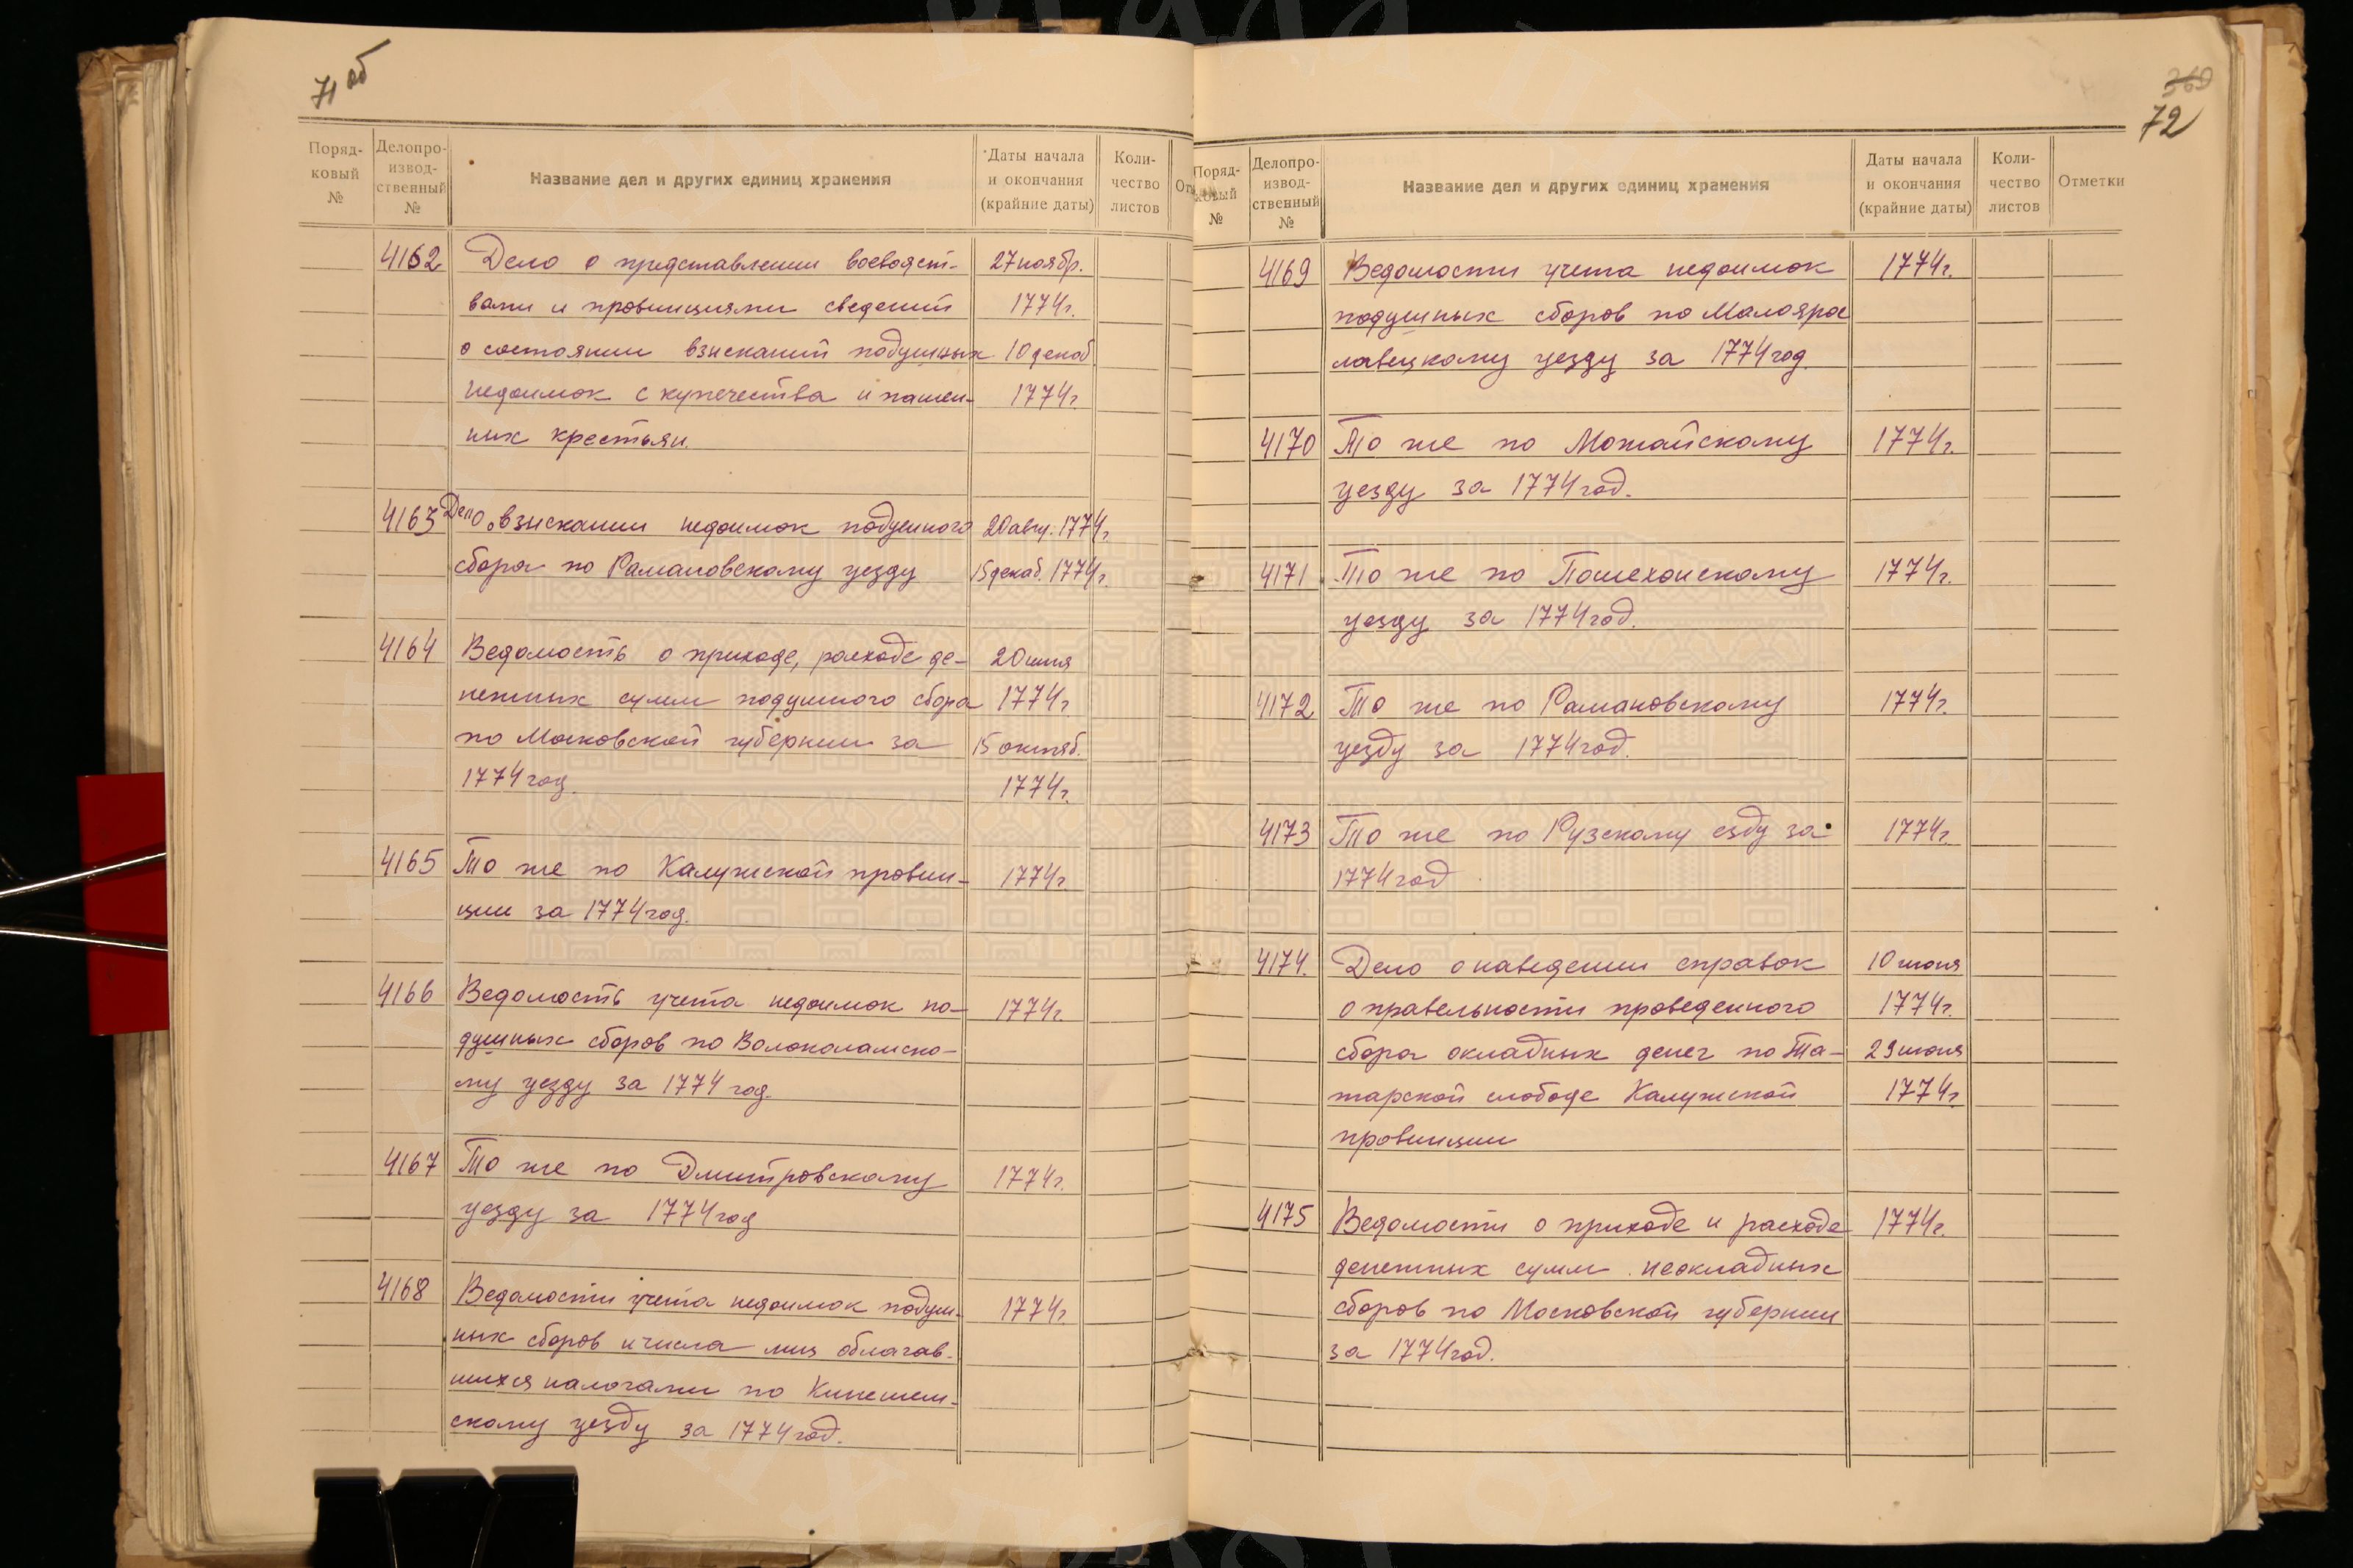 71об
Поряд-
ковый
№
Делопро-
извод-
ственный
№
Название дел и других единиц хранения
Даты начала
и окончания
(крайние даты)
Коли-
чество
листов
От
4162 Дело о представлении воеводст- 27 ноябр.
вами и провинциями сведений 1774г.
о состоянии взысканий подушных 10 декаб
недоимок с купечества и пашен- 1774г.
ных крестьян.
4163 Дело о взыскании недоимок подушного 20 авг. 1774г.
сбора по Романовскому уезду 15 декаб. 1774г.
4164 Ведомость о приходе, расходе де- 20 июля
нежных сумм подушного сбора 1774г.
по Московской губернии за 15 октяб.
1774 год. 1774г.
4165 То же по Калужской провин- 1774г.
ции за 1774 год.
4166 Ведомость учета недоимок по- 1774г.
душных сборов по Волоколамско-
му уезду за 1774 год.
4167 То же по Дмитровскому 1774г.
уезду за 1774 год
4168 Ведомости учета недоимок подуш- 1774г.
ных сборов и числа лиц облагав-
шихся налогами по Кинешем-
скому уезду за 1774 год.
360
72
Поряд-
ковый
№
Делопро-
извод-
ственный
№
Название дел и других единиц хранения
Даты начала
и окончания
(крайние даты)
Коли-
чество
листов
Отметки
4169 Ведомости учета недоимок 1774г.
подушных сборов по Малоярос
лавецкому уезду за 1774 год.
4170 То же по Можайскому 1774г.
уезду за 1774 год.
4171 То же по Пошехонскому 1774г.
уезду за 1774 год.
4172 То же по Романовскому 1774г.
уезду за 1774 год.
4173 То же по Рузскому езду за 1774г.
1774 год
4174. Дело о наведении справок 10 июня
о правельности проведенного 1774г.
сбора окладных денег по Та- 29 июня
тарской слободе Калужской 1774г.
провинции
4175 Ведомости о приходе и расходе 1774г.
денежных сумм неокладных
сборов по Московской губернии
за 1774 год.